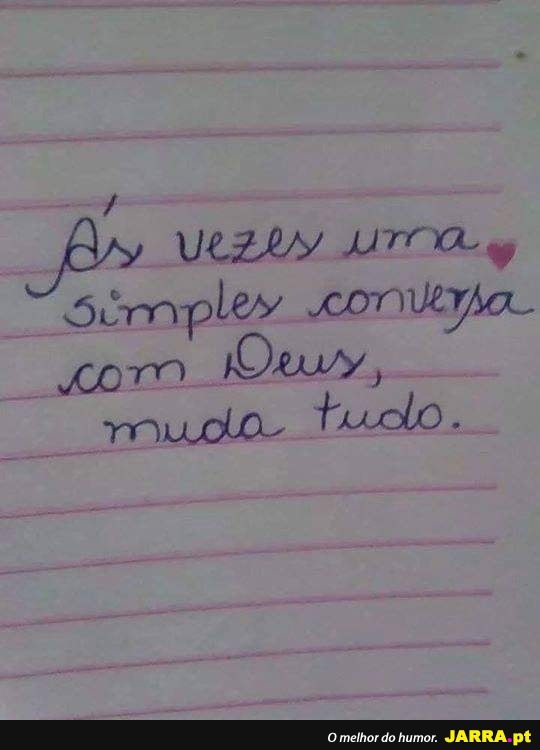 Ás vezes uma
simples conversa
com Deus,
muda tudo.
O melhor do humor. JARRA.pt